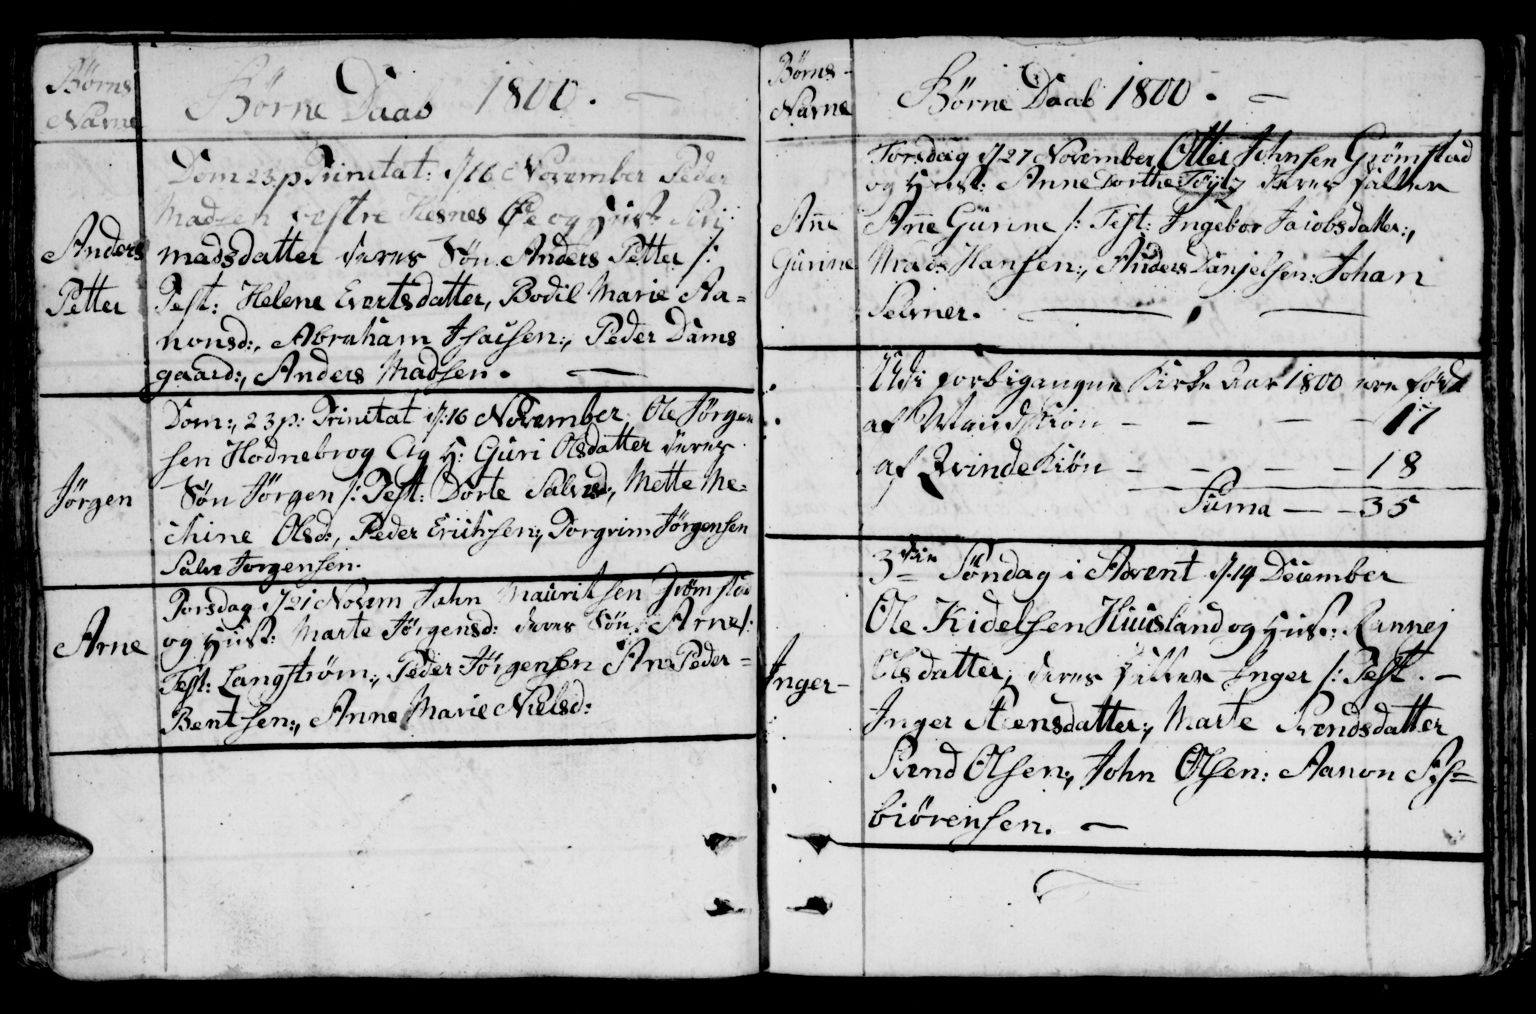 Børns Navne
Børne Daab 1800. —
Anders Petter
Dom 23 p Trinitat: d/16 November Peder
Madsen vestre Hesnes Øe og Hust Siri
madsdatter deres Søn Anders Petter /:
Test: Helene Evertsdatter, Bodil Marie Aa=
nonsd:, Abraham Isacsen:, Peder Dams
gaard:, Anders Madsen. —
Jørgen
Dom:, 23 p: Trinitat d/:16 November Ole Jørgen
sen Hodnebrog Og H: Guri Olsdatter deres
Søn Jørgen /: Test: Dorte Salvesd:, Mette Me=
chine Olsd:, Peder Erichsen:, Torgrim Jørgensen
Salve Jorgensen.
Arne
Torsdag d/21 Novem John Mauritsen Grømstad
og Hust: Marte Jørgensd: deres Søn: Arne /:
Test: Langstrøm:, Peder Jørgensen Ane Peder=
Bentsen:, Anne Marie Nielsd:
Børns-Navne
Børne Daab 1800. —
Añe Gurine
Torsdag d/27 November Otter Johnsen Grømstad
og Hust: Anne Dorthe deres datter
Añe Gurine /: Test: Ingebor Jacobsdatter:,
Mads Hansen:, Anders Danjelsen: Johan
Selmer. —
Udi forbigangne Kirke Aar 1800 ere født
af Mandkiøn — — — — 17
af Qvindekiøn — — — — 18
Suma — — 35
Inger-
3die Søndag i Advent d/.14 December
Ole Kidelsen Huusland og Hust: Rannej
Olsdatter, deres datter Inger /: Test. —
Inger Steensdatter:, Marte Svendsdatter
Svend Olsen:, John Olsen: Aanon As=
biørensen. —